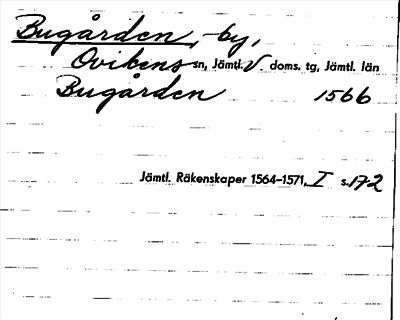 Bugården, by,
Ovikens sn, Jämtl. V doms. tg, Jämtl. län
Bugården 1566
Jämtl. Räkenskaper 1564–1571, I s. 172